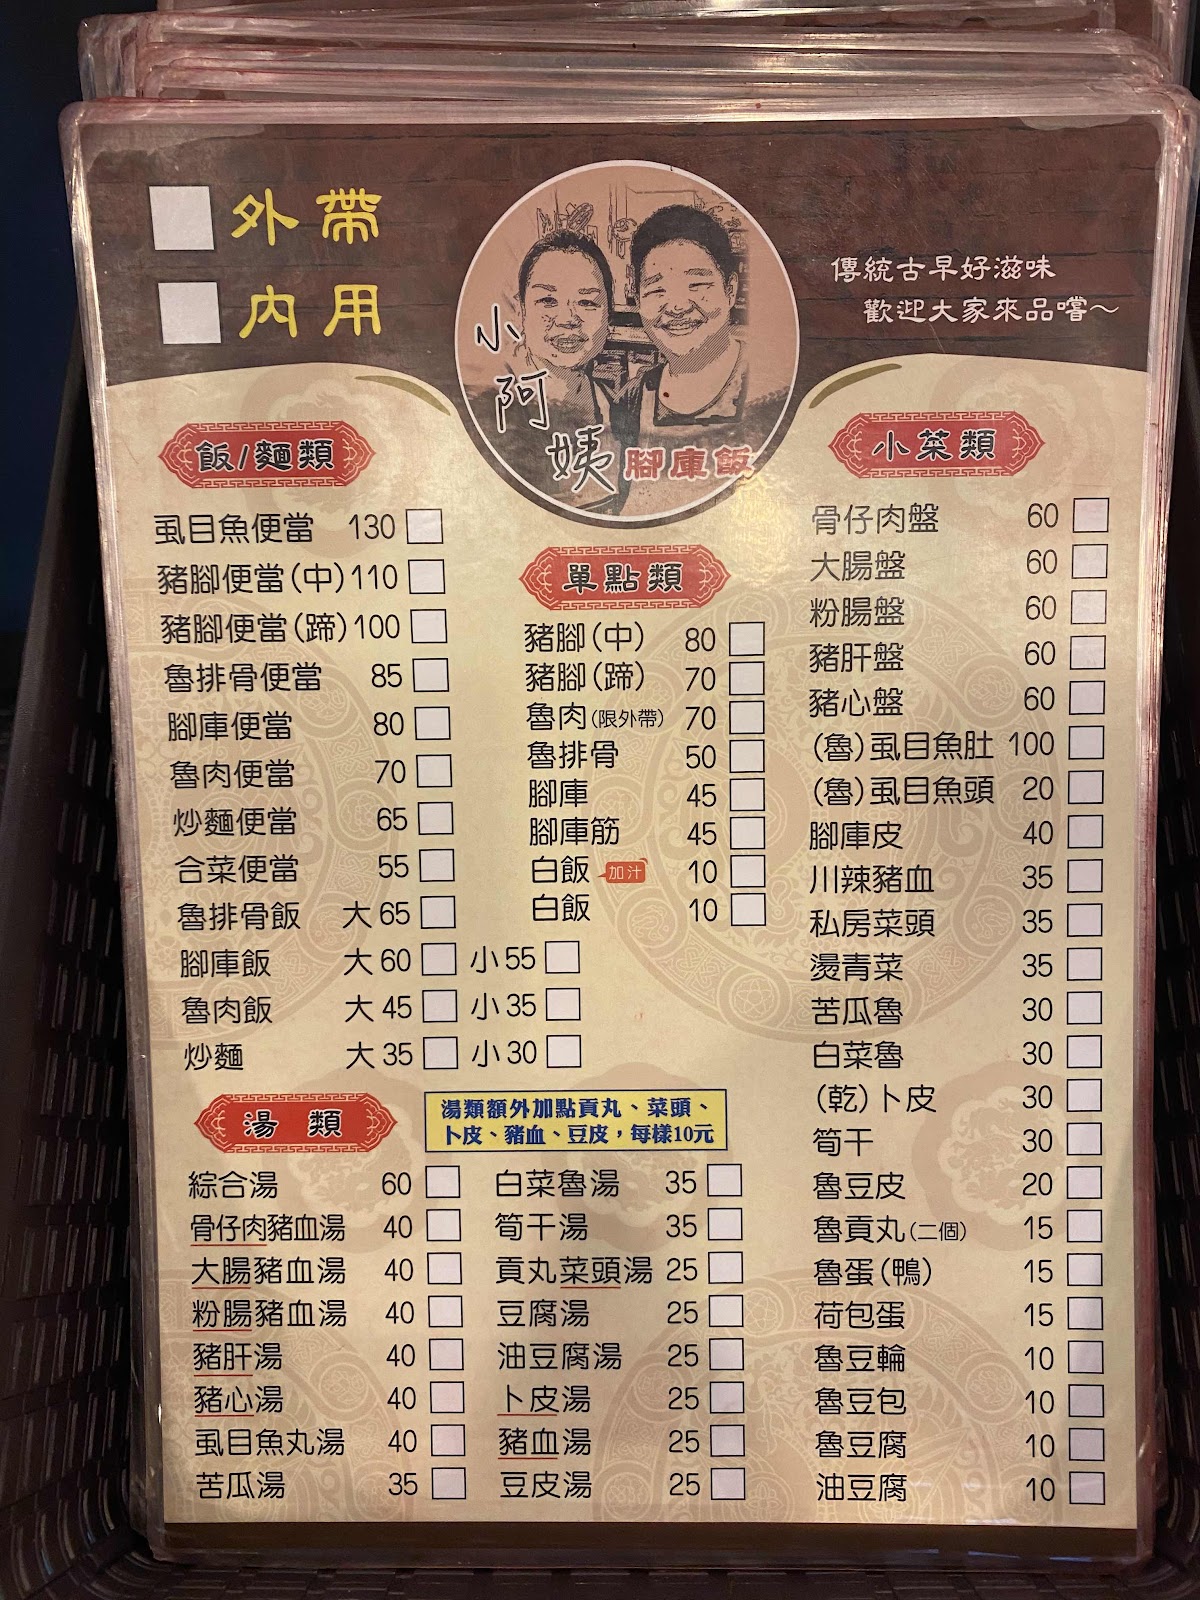 外帶
內用
小阿姨腳庫飯
傳統古早好滋味
歡迎大家來品嚐～
飯/麵類
虱目魚便當 130
豬腳便當(中) 110
豬腳便當(蹄) 100
魯排骨便當 85
腳庫便當 80
魯肉便當 70
炒麵便當 65
合菜便當 55
魯排骨飯 大 65
腳庫飯 大 60 小 55
魯肉飯 大 45 小 35
炒麵 大 35 小 30
單點類
豬腳(中) 80
豬腳(蹄) 70
魯肉(限外帶) 70
魯排骨 50
腳庫 45
腳庫筋 45
白飯 加汁 10
白飯 10
湯類
湯類額外加點貢丸、菜頭、
卜皮、豬血、豆皮，每樣10元
綜合湯 60
骨仔肉豬血湯 40
大腸豬血湯 40
粉腸豬血湯 40
豬肝湯 40
豬心湯 40
虱目魚丸湯 40
苦瓜湯 35
白菜魯湯 35
筍干湯 35
貢丸菜頭湯 25
豆腐湯 25
油豆腐湯 25
卜皮湯 25
豬血湯 25
豆皮湯 25
小菜類
骨仔肉盤 60
大腸盤 60
粉腸盤 60
豬肝盤 60
豬心盤 60
(魯)虱目魚肚 100
(魯)虱目魚頭 20
腳庫皮 40
川辣豬血 35
私房菜頭 35
燙青菜 35
苦瓜魯 30
白菜魯 30
(乾)卜皮 30
筍干 30
魯豆皮 20
魯貢丸(二個) 15
魯蛋(鴨) 15
荷包蛋 15
魯豆輪 10
魯豆包 10
魯豆腐 10
油豆腐 10